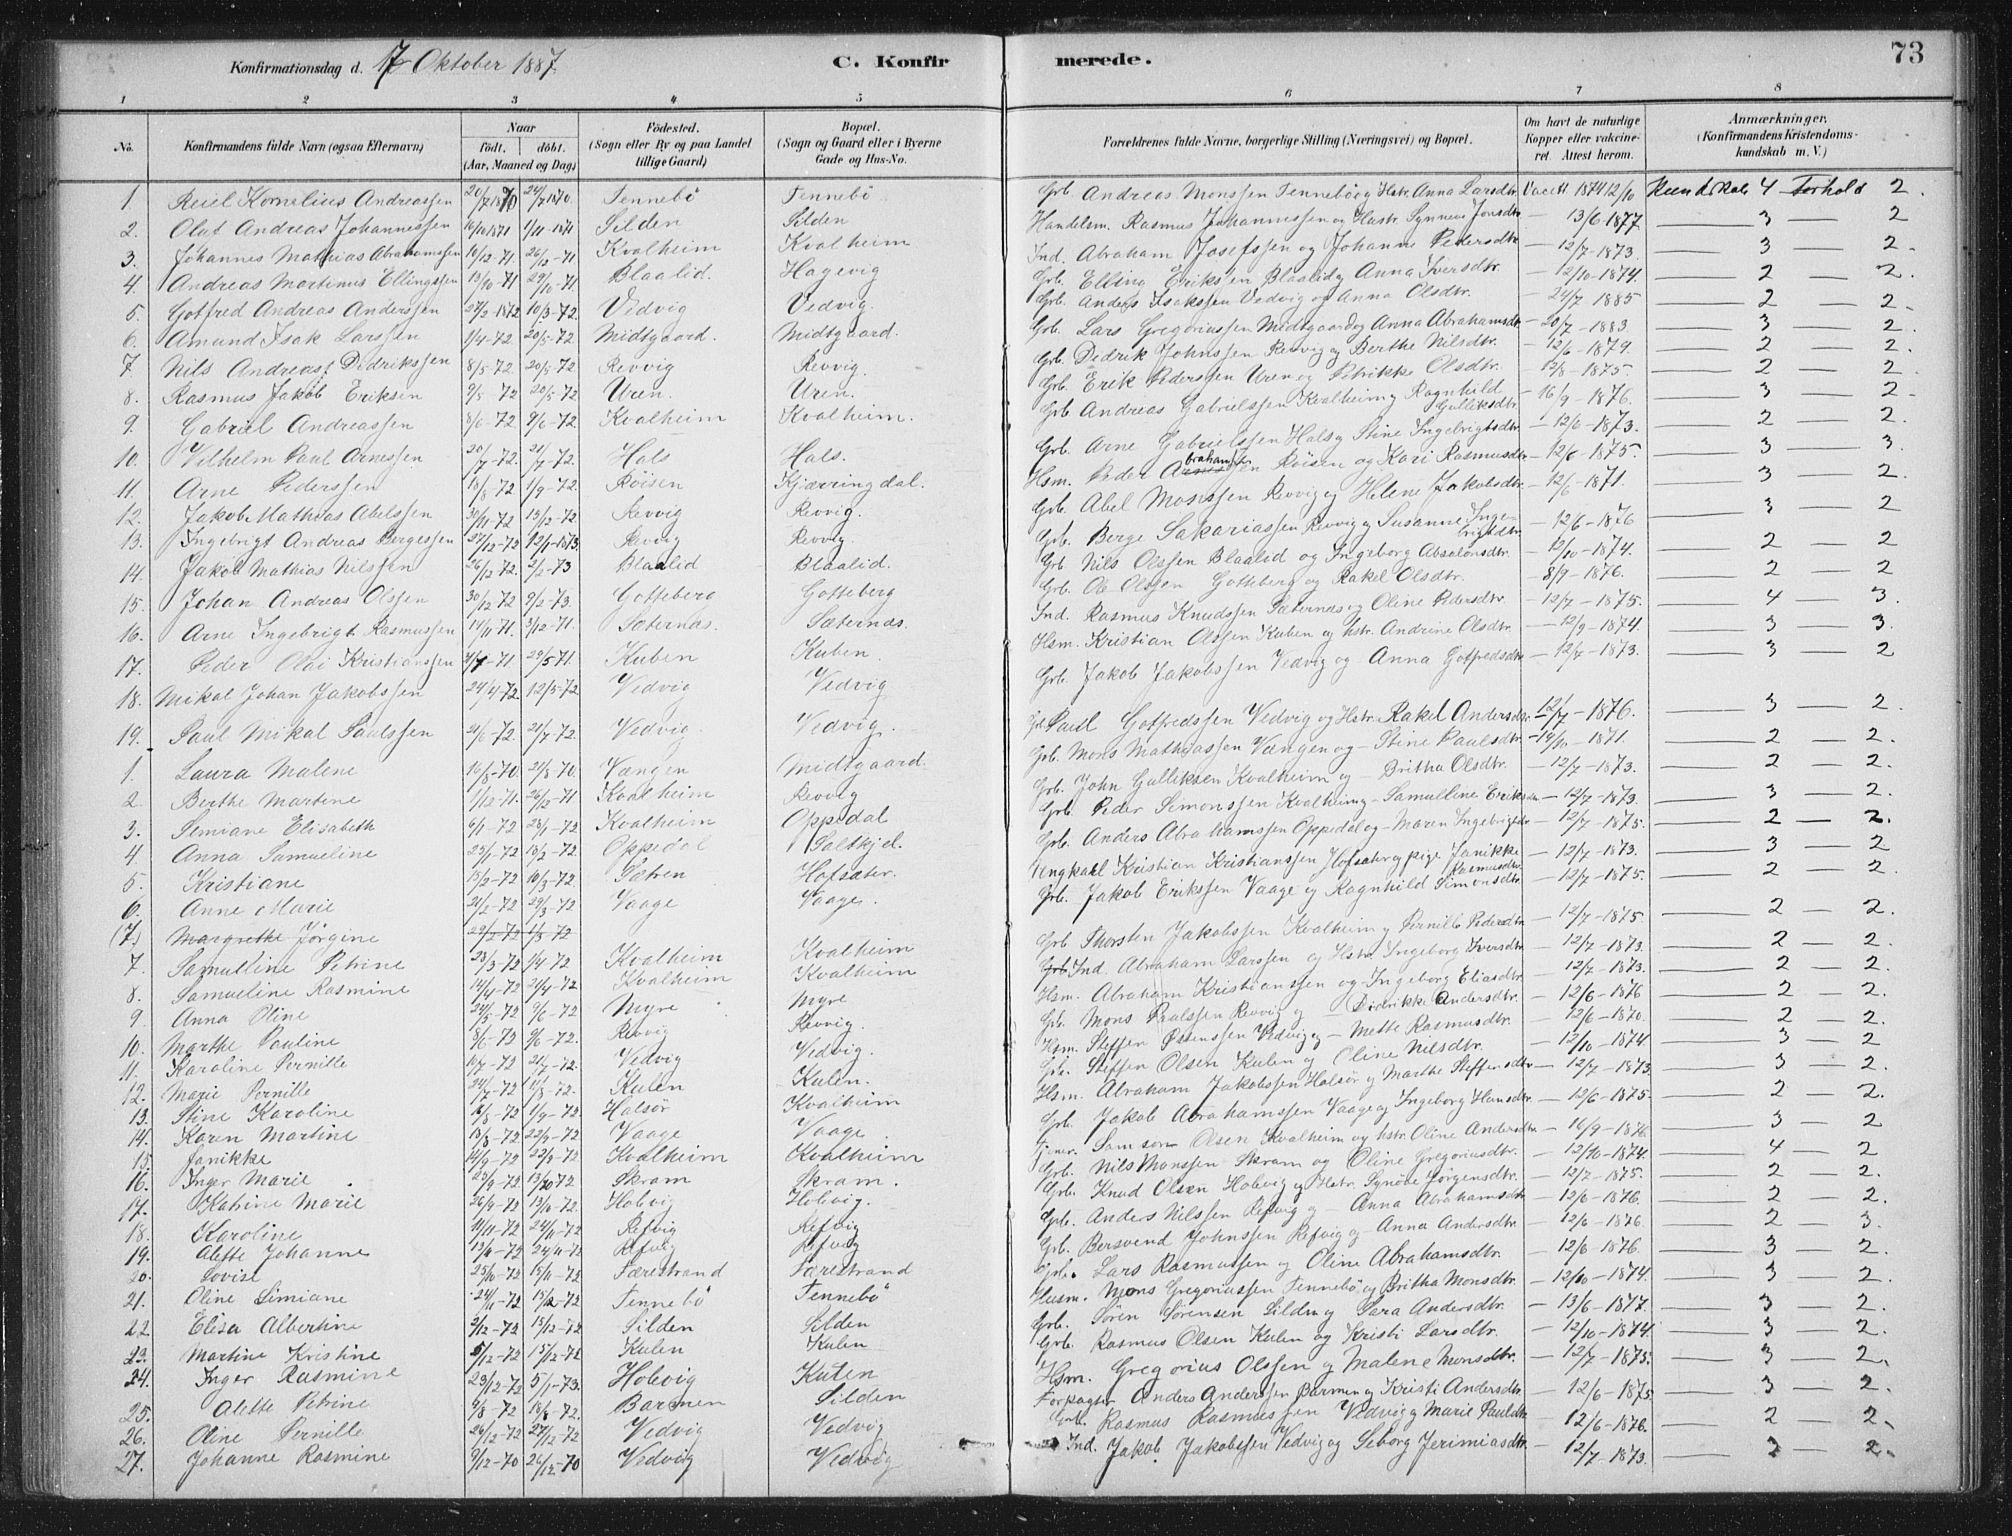 Konfirmationsdag d. 17 Oktober 1887. C. Konfirmerede. 73
1 2 3 4 5 6 7 8
No. Konfirmandens fulde Navn (ogsaa Efternavn) Naar födt. döbt. (Aar, Maaned og Dag) Födested. (Sogn eller By og paa Landet tillige Gaard) Bopæl. (Sogn og Gaard eller i Byerne Gade og Hus-No. Forældrenes fulde Navne, borgerlige Stilling (Næringsvei) og Bopæl. Om havt de naturlige Kopper eller vaccineret. Attest herom. Anmærkninger. (Konfirmandens Kristendomskundskab m. V.)
1. Reiel Kornelius Andreassen 20/7 1870 24/7 1870. Tennebö Tennebö Grb. Andreas Monssen Tennebö og Hstr. Anna Larsdtr. Vacett 1874 12/10 Kundskab 4 Forhold 2.
2. Olut Andreas Johannessen 16/10 1871 1/11-1871 Silden Silden Handelsm. Rasmus Johannessen og Hustr. Synneve Jonsdtr. — 13/6 1877 — 3 — 2
3. Johannes Mathias Abrahamssen 10/12-71. 26/12-71 Kvalheim Kvalheim Ind. Abraham Josefssen og Johanne Pedersdtr. — 12/7-1873. — 3 — 2.
4. Andreas Martinus Ellingssen 13/10 71 29/10-71 Blaalid. Hagevig Grb. Elling Erikssen Blaalid og Anna Iversdtr. — 12/10-1874. — 2 — 2.
5. Gotfred Andreas Anderssen 27/2-1872 10/3-72. Vedvig Vedvig. Grb. Anders Isakssen Vedvig og Anna Olsdtr. — 24/7 1885 — 2 — 2.
6. Amund Isak Larssen 1/4-72. 20/5-72 Midtgaard. Midtgaard. Grb. Lars Gregoriussen Midtgaard og Anna Abrahamsdtr. — 20/7-1883. — 3 — 2.
7 Nils Andreas Didrikssen 8/5-72. 20/5-72 Revvig Revvig. Grb. Didrik Johnssen Revvig og Berthe Nilsdtr. — 12/6-1879. — 2 — 2.
8. Rasmus Jakob Eriksen 9/5 72 20/5-72 Uren. Uren. Grb. Erik Pederssen Uren og Petrikke Olsdtr. — 12/8-1875. — 2 — 2.
9. Gabriel Andreassen 8/6-72 9/6-72. Kvalheim Kvalheim. Grb. Andreas Gabrielssen Kvalheim og Ragnhild Gulliksdtr. — 16/9-1876. — 3 — 2
10. Vilhelm Paul Arnessen 20/7-72. 21/7-72. Hals Hals. Grb. Arne Gabrielssen Hals og Stine Ingebrigtsdtr. — 12/6-1873. — 2 — 2.
11. Arne Pederssen 18/8-72 1/9-72. Röisen Kjærringdal. Hsm. Peder Abrahamssen Röisen og Kari Rasmusdtr. — 12/6-1875. — 3 — 3.
12. Jakob Mathias Abelssen 30/11-72 13/12-72. Revvig Revvig. Grb. Abel Monssen Revvig og Helene Jakobsdtr. — 12/6-1871. — 3 — 2.
13. Ingebrigt Andreas Bergessen 27/12-72 12/1-1873. Revvig Revvig. Grb. Berge Sakariassen Revvig og Susanne Ingebrigtsdtr. — 12/6-1876 — 3 — 2
14. Jakob Mathias Nilssen 26/12 72. 2/2-73 Blaalid Blaalid. Grb. Nils Olssen Blaalid og Ingeborg Absalonsdtr. — 12/10-1874. — 2 — 2
15. Johan Andreas Olssen 30/12-72 9/2-73. Gotteberg Gotteberg Grb. Ole Olssen Gotteberg og Rakel Olsdtr. — 8/9-1876. — 2 — 2
16. Arne Ingebrigt Rasmussen 14/11 71. 3/12-71. Sæternæs. Sæternæs. Ind. Rasmus Knudssen Sæternæs og Oline Pedersdtr. — 12/7-1875. — 4 — 3.
17. Peder Olai Kristianssen 4/4-71 29/5-71. Kuben Kuben. Hsm. Kristian Olssen Kuben og hstr. Andrine Olsdtr. — 12/9-1874. — 3 — 3.
18. Mikal Johan Jakobssen 24/4-72. 12/5-72 Vedvig Vedvig Grb. Jakob Jakobssen Vedvig og Anna Gotfredsdtr. — 12/7-1873. — 3 — 2
19. Paul Mikal Paulssen 21/6-72. 21/7-72. Vedvig. Vedvig. Grb. Paul Gotfredssen Vedvig og Hstr. Rakel Andersdtr. 12/7-1876. — 3 — 2.
1. Laura Malene 16/8-70. 21/8-70. Vængen Midtgaard. Grb. Mons Mathiassen Vængen og — Stine Paulsdtr. — 19/10-1871. — 2 — 2.
2. Berthe Martine 1/12-71. 26/12-71 Kvalheim Revvig Grb. John Gulliksen Kvalheim og — Britha Olsdtr. — 12/7-1873. — 2 — 2.
3. Simiane Elisabeth 6/1-72 28/1-72 Kvalheim Oppedal Grb. Peder Simonssen Kvalheim og — Samulline Eriksdtr. — 12/7-1873. — 3 — 2.
4. Anna Samueline 23/1-72 18/2-72. Oppedal Saltkjel. Grb. Anders Abrahamssen Oppedal og — Maren Ingebrigtsdtr. — 12/7-1875. — 2 — 2.
5. Kristiane 15/2-72 10/3-72. Sætren Hofsæter. Ungkarl Kristian Kristianssen Hofsæter og pige Janikke Rasmusdtr. — 12/7-1873. — 3 — 2
6. Anne Marie 21/2-72 29/3-72 Vaage Vaage. Grb. Jakob Erikssen Vaage og Ragnhild Simonsdtr. — 12/7-1875. — 2 — 2.
(7.) Margrethe Jörgine 29/2-72 1/3 72
7. Samulline Petrine 23/3-72 1/4-72 Kvalheim Kvalheim Grb Thorsten Jakobssen Kvalheim og Pernille Pedersdtr. — 12/7-1875 — 2 — 2.
8. Samueline Rasmine 14/4-72 21/4-72 Kvalheim Kvalheim Grb Ind. Abraham Larssen og Hstr. Ingeborg Iversdtr. — 12/7-1873. — 2 — 2.
9. Anna Oline 24/5-72 9/6-72 Myre Myre Hsm. Abraham Kristianssen og Ingeborg Eliasdtr. — 12/7-1873. — 2 — 2.
10. Marthe Pauline 8/6-72 9/6-72. Revvig Revvig. Grb. Mons Paulssen Revvig og — Didrikke Andersdtr. — 12/6-1876 — 2 — 2.
11. Karoline Pernille 10/7-72 21/7-72. Vedvig Vedvig. Hsm. Steffen Östenssen Vedvig og — Mette Rasmusdtr. — 12/6-1870. — 2 — 2.
12. Marie Pernille 24/7-72 11/8-72. Kulen Kulen. Grb. Steffen Olsen Kulen og Oline Nilsdtr. — 12/10-1874 — 3 — 2
13. Stine Karoline 16/8-72 1/9-72 Halsör Kvalheim Hsm. Abraham Jakobssen Halsör og Marthe Steffensdtr — 12/7-1873. — 2 — 2.
14. Karen Martine 18/8-72 22/9-72 Vaage Vaage Grb. Jakob Abrahamssen Vaage og Ingeborg Hansdtr. — 12/6-1875. — 2 — 2.
15. Janikke 14/9-72 22/9-72 Kvalheim Kvalheim Tjener. Samson Olsen Kvalheim og hstr. Oline Andersdtr. — 16/9-1876. — 3 — 2
16. Inger Marie 23/9-72 13/10 72 Skram Skram. Grb. Nils Monssen Skram og Oline Gregoriusdtr. — 12/10-1874. — 4 — 2
17. Katrine Marie 26/9-72 13/10-72 Hobvig Hobvig. Grb. Knud Olsen Hobvig og Hstr. Synöve Jörgensdtr. — 12/7-1875. — 2 — 2.
18. Karoline 11/11-72 24/11-72 Refvig Refvig Grb. Anders Nilssen Refvig og — Anna Abrahamsdtr. — 12/6-1876. — 2 — 2.
19. Alette Johanne 13/11-72 24/11-72 Refvig Refvig Grb. Bersvend Johnssen Refvig og Anna Andersdtr. — 12/6-1876. — 2 — 3.
20. Lovise 25/10-72 15/11-72 Færestrand Færestrand Grb. Lars Rasmussen og Oline Abrahamsdtr. — 12/6 1876. — 3 — 2.
21. Oline Simiane 24/11-72 15/12-72 Tennebö Tennebö Husm. Mons Gregoriussen Tennebö og Britha Monsdtr. — 12/10-1874. — 3 — 2.
22. Elisa Albertine 2/12-72 15/12-72 Silden Silden Grb. Sören Sörensen Silden og Sara Andersdtr. — 13/6-1877. — 3 — 2.
23. Martine Kristine 5/12-72 15/12-72 Kulen Kulen Grb. Rasmus Olsen Kulen og Kristi Larsdtr. — 12/10-1874. — 3 — 2.
24. Inger Rasmine 23/12-72 5/1-73. Hobvig Kulen Hsm. Gregorius Olssen og Malene Monsdtr. — 12/7-1875. — 3 — 2.
25. Alette Petrine 9/8-72 18/8-72. Barmen Silden Forpagter Anders Anderssen Barmen og Kristi Andersdtr. — 12/6-1875. — 3 — 2.
26. Oline Pernille 26/12-72 27/12-72 Vedvig Vedvig Grb. Rasmus Rasmussen Vedvig og Marie Paulsdtr. — 12/6-1876. — 2 — 2.
27. Johanne Rasmine 9/12-70 26/12-70 Vedvig Vedvig Ind. Jakob Jakobssen Vedvig og Seborg Jerimiasdtr. — 12/7-1873. — 2 — 2.